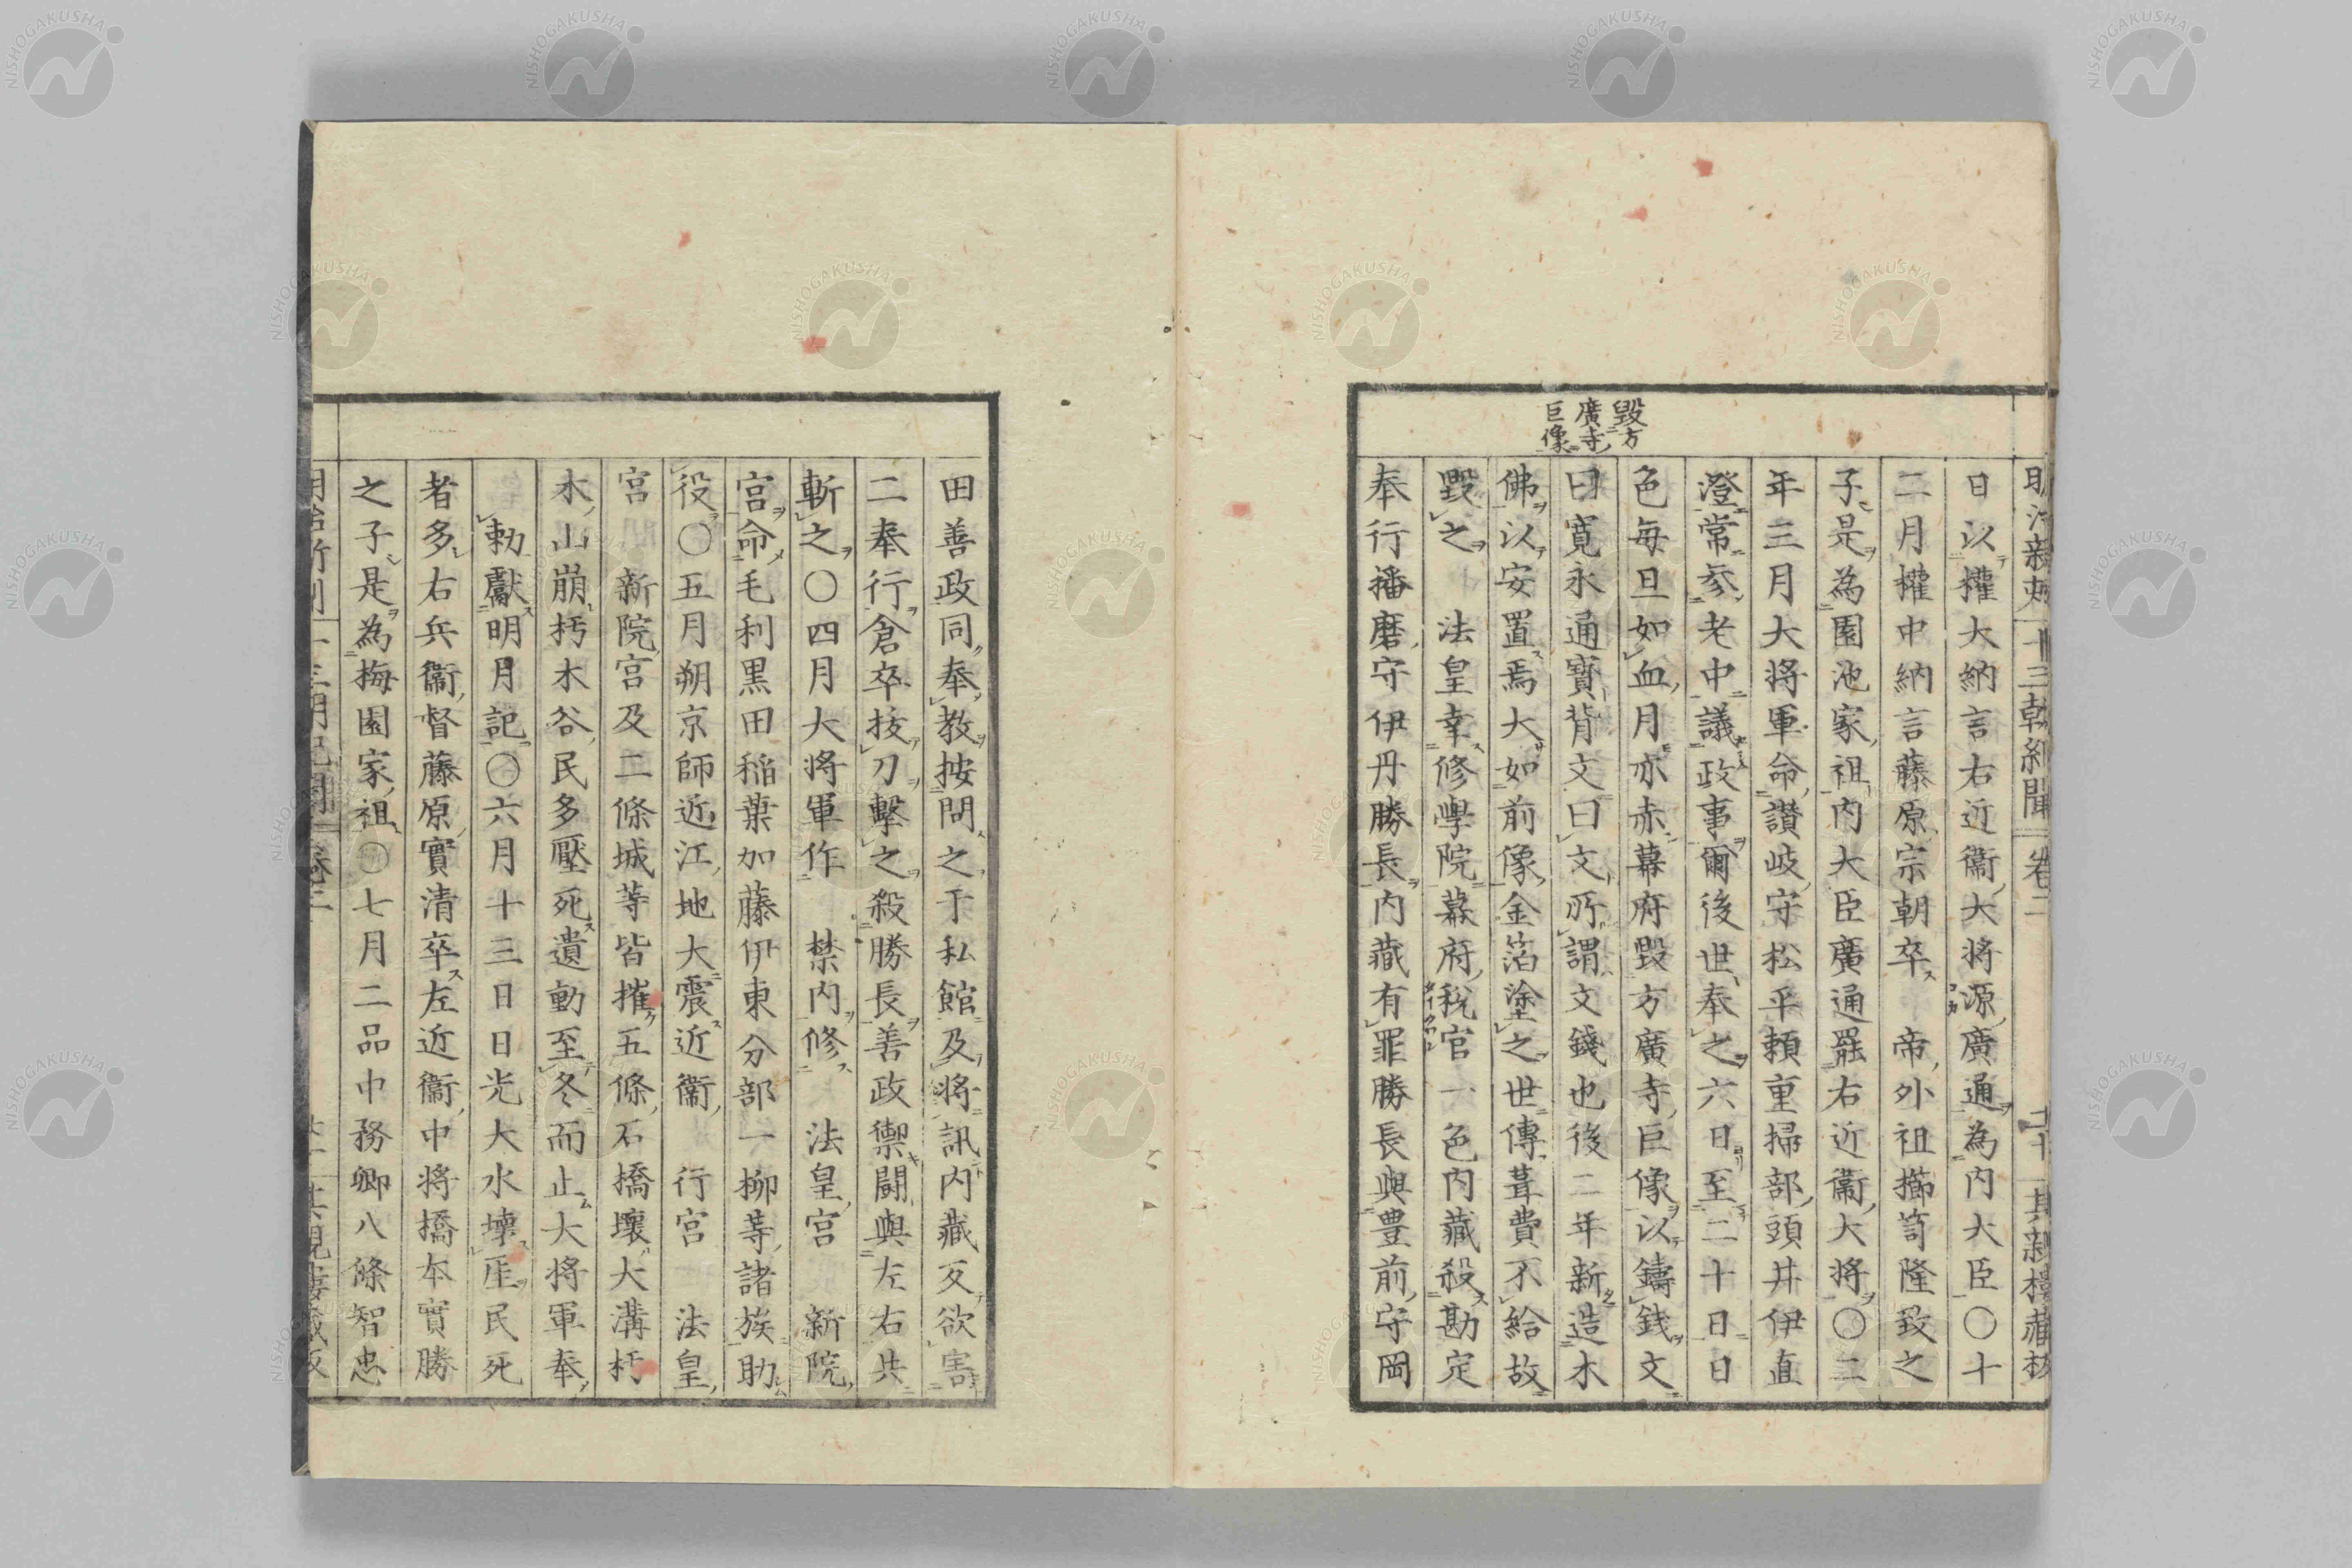 毀方
廣寺
巨像
日以權大納言右近衞大將源廣通為内大臣○十
二月權中納言藤原宗朝卒 帝外祖櫛笥隆致之
子是為園池家祖内大臣廣通罷右近衞大將○二
年三月大將軍命讚岐守松平賴重掃部頭井伊直
澄常參老中議政事爾後世奉之六日至二十日日
色每旦如血月亦赤幕府毀方廣寺巨像以鑄錢文
曰寬永通寶背文曰文所謂文錢也後二年新造木
佛以安置焉大如前像金箔塗之世傳葺費不給故
毀之 法皇幸修學院幕府稅官一色内藏殺勘定
奉行播磨守伊丹勝長内藏有罪勝長與豊前守岡
田善政同奉教按問之于私館及將訊内藏反欲害
二奉行倉卒拔刀擊之殺勝長善政禦鬭與左右共
斬之○四月大將軍作 禁内修 法皇宮 新院
宮命毛利黒田稲葉加藤伊東分部一柳等諸族助
役○五月朔京師近江地大震近衞 行宮 法皇
宮 新院宮及二條城等皆摧五條石橋壞大溝朽
木山崩朽木谷民多壓死遺動至冬而止大將軍奉
勅獻明月記○六月十三日日光大水壞㕓民死
者多右兵衞督藤原實清卒左近衞中將橋本實勝
之子是為梅園家祖○七月二品中務卿八條智忠